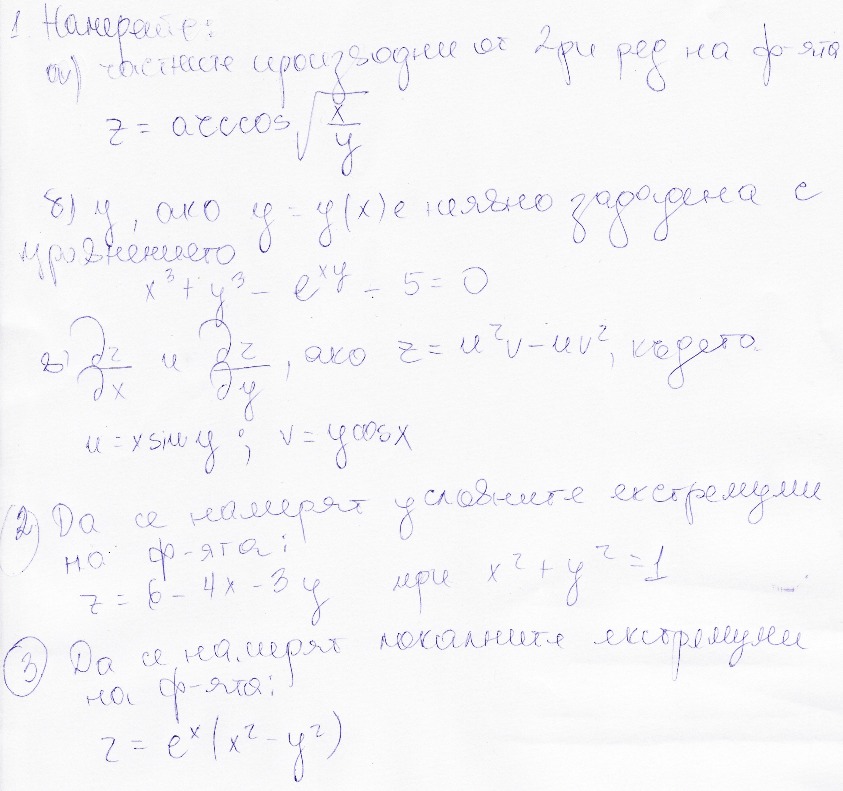 1. Намерете:
а) частните производни от 2ри ред на ф-ята
z = arccos √(x/y)
б) y, ако y = y(x) е неявно зададена с
уравнението
x³ + y³ - e^{xy} - 5 = 0
в) ∂z/∂x и ∂z/∂y, ако z = u²v - uv², където
u = x sin y ; v = y cos x
(2) Да се намерят условните екстремуми
на ф-ята:
z = 6 - 4x - 3y при x² + y² = 1
(3) Да се намерят локалните екстремуми
на ф-ята:
z = eˣ(x² - y²)